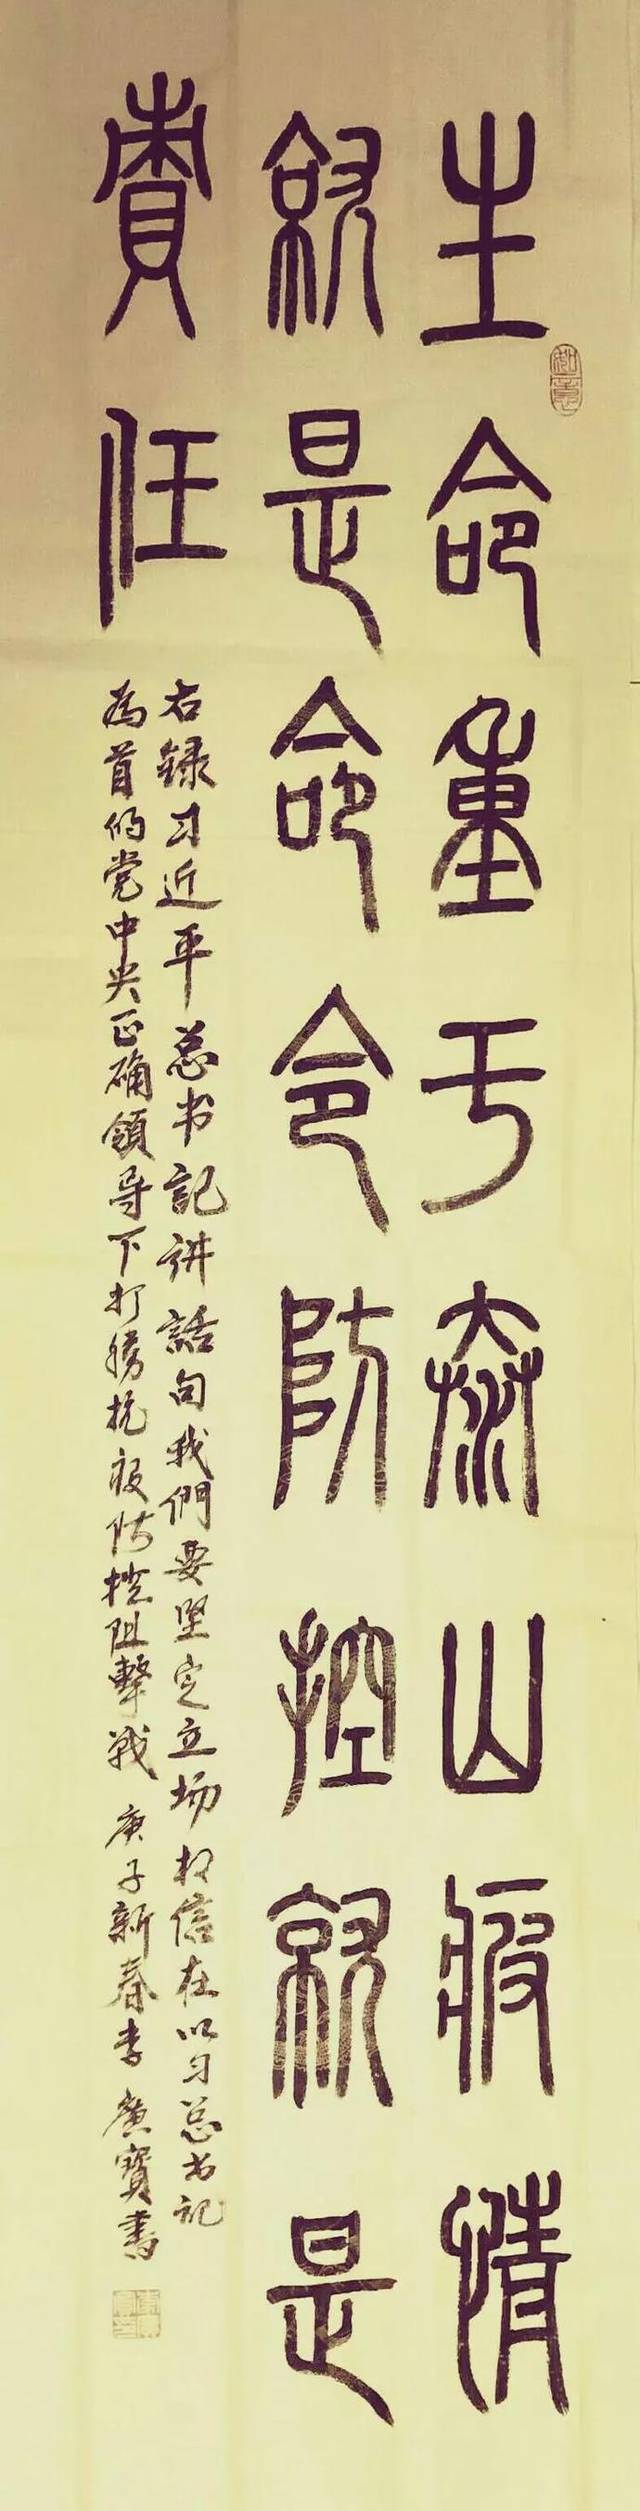 生命重于泰山疫情
就是命令防控就是
責任
右録习近平总书記讲話句我們要坚定立场相信在以习总书記
為首的党中央正确領导下打勝抗疫防控阻擊战 庚子新春李廣寶書
如意